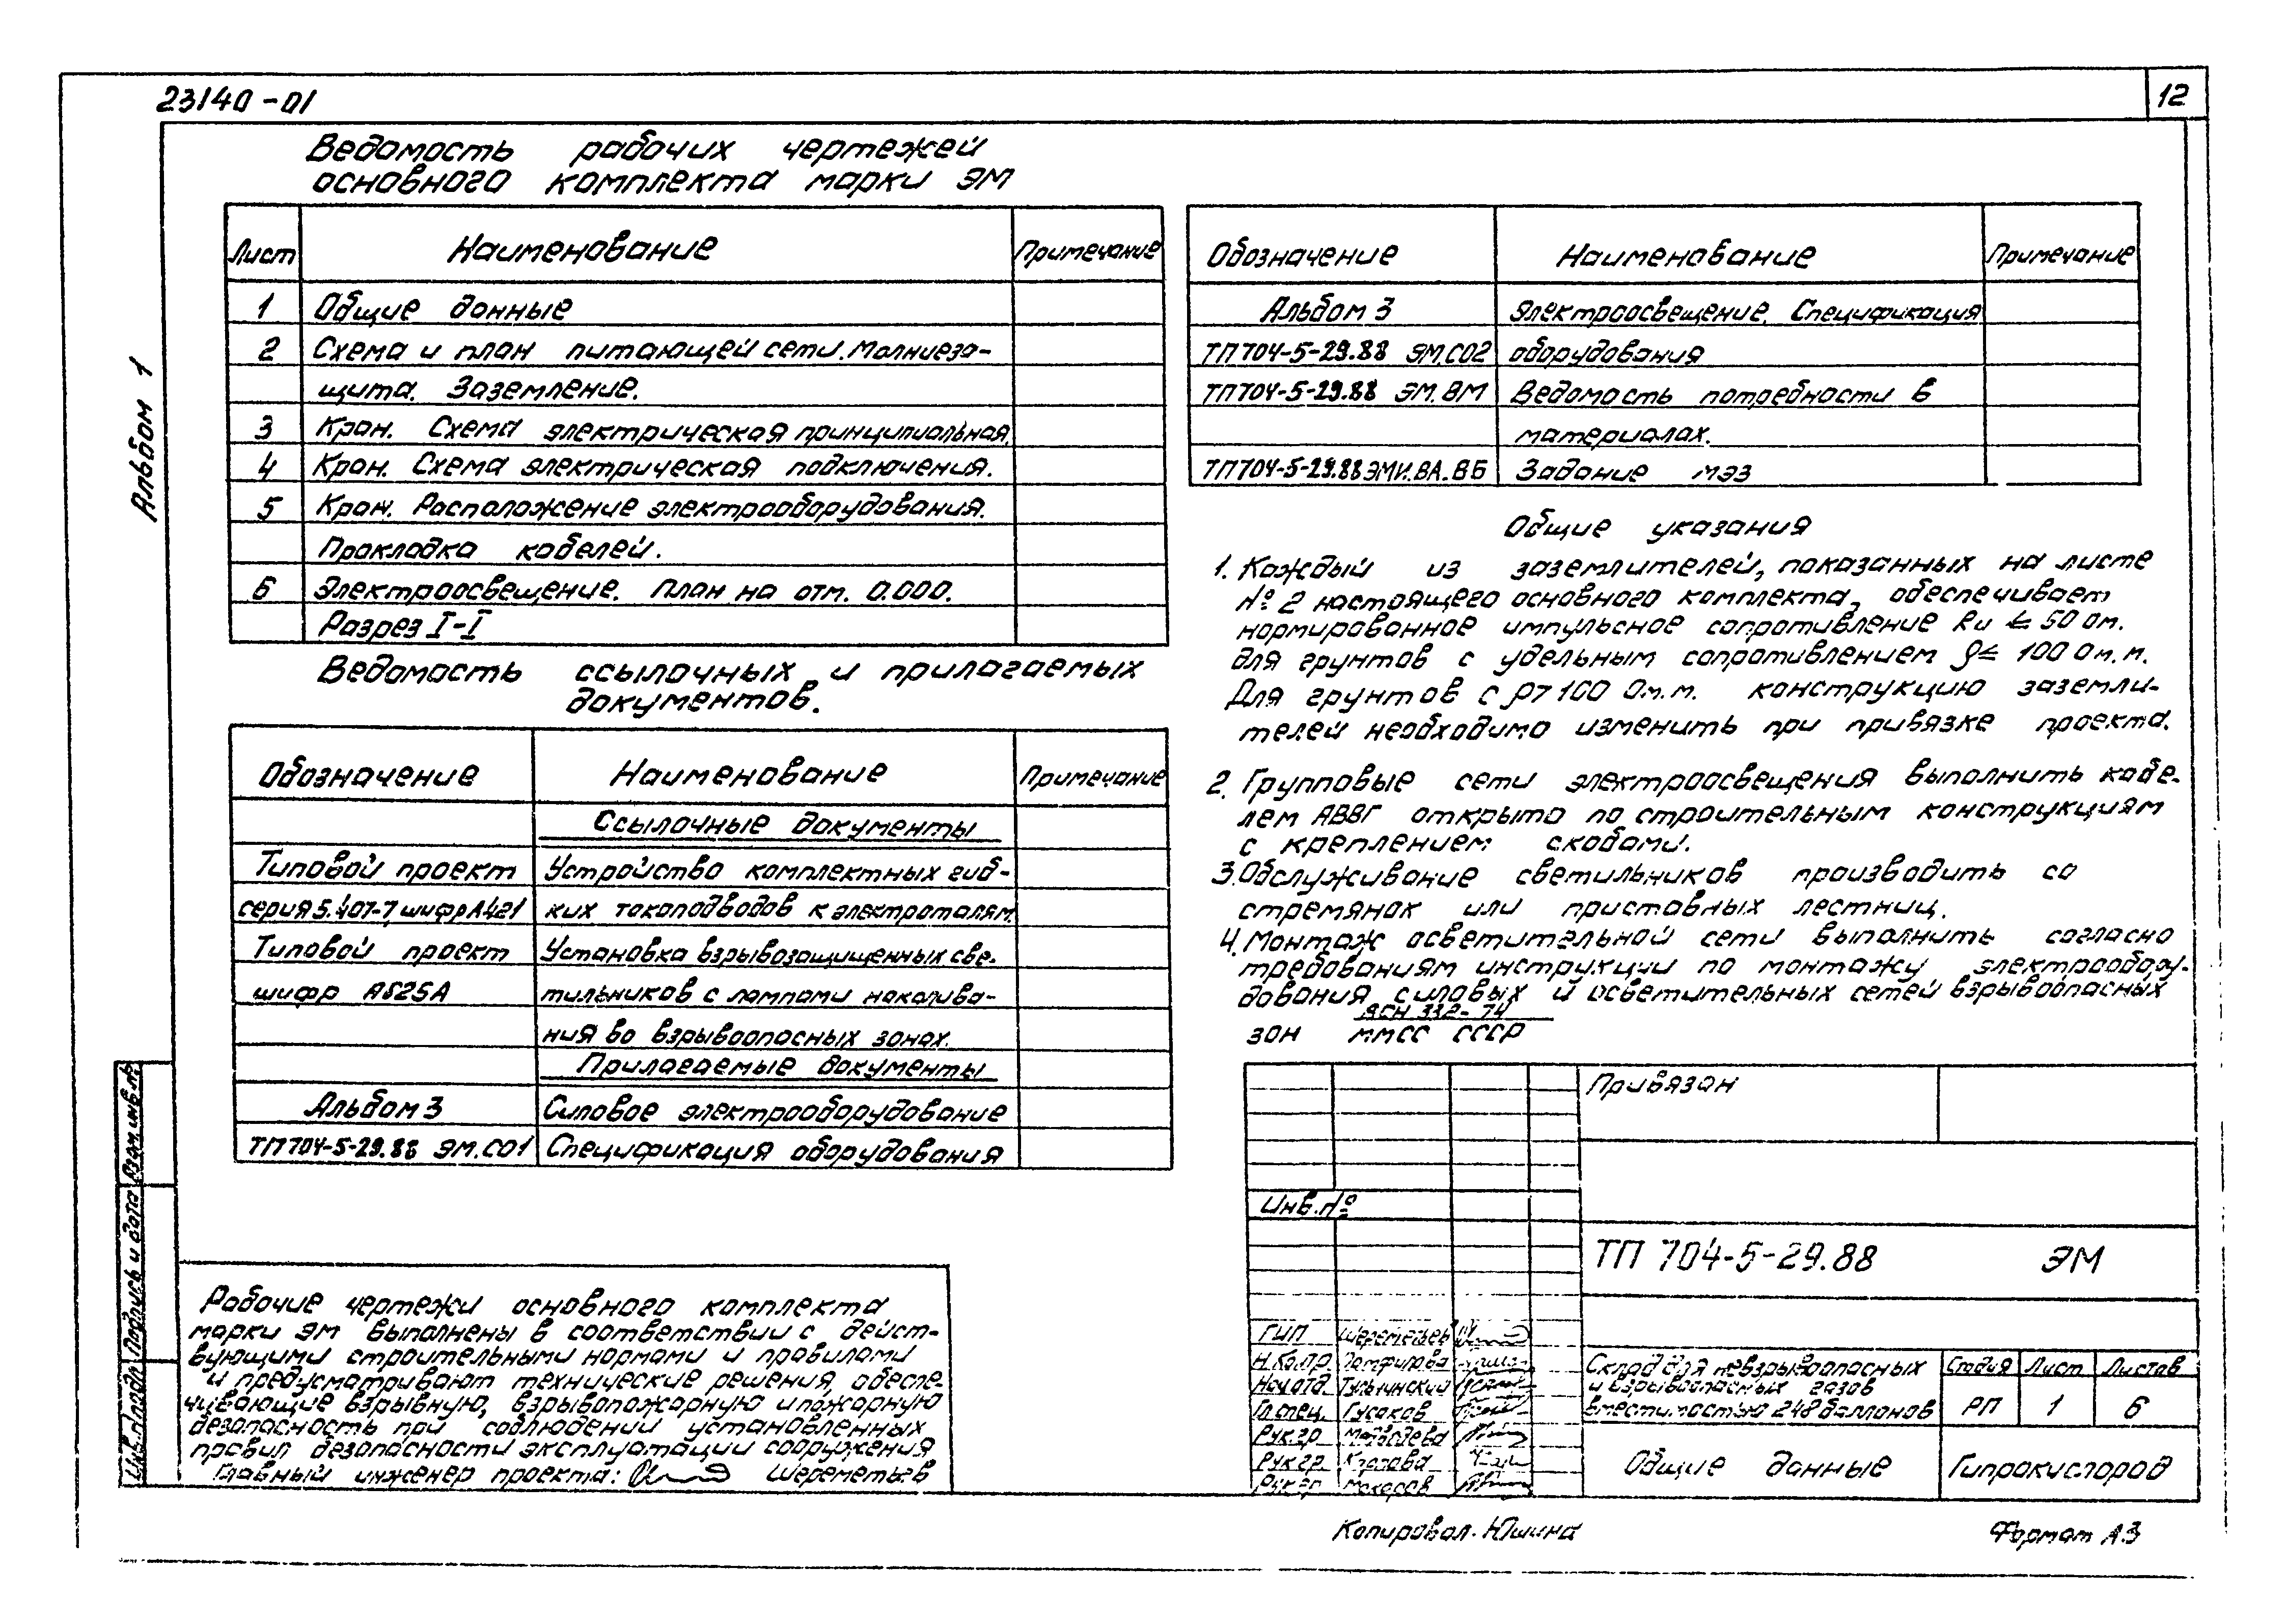 23140-01
12
Альбом 1
Ведомость рабочих чертежей
основного комплекта марки ЭМ
Лист Наименование Примечание
1 Общие данные
2 Схема и план питающей сети. Молниеза-
щита. Заземление.
3 Кран. Схема электрическая принципиальная.
4 Кран. Схема электрическая подключения.
5 Кран. Расположение электрооборудования.
Прокладка кабелей.
6 Электроосвещение. План на отм. 0.000.
Разрез I-I
Ведомость ссылочных и прилагаемых
документов.
Обозначение Наименование Примечание
Ссылочные документы
Типовой проект Устройство комплектных гиб-
серия 5.407-7, шифр А421 ких токоподводов к электроталям
Типовой проект Установка взрывозащищенных све-
шифр А525А тильников с лампами накалива-
ния во взрывоопасных зонах.
Прилагаемые документы
Альбом 3 Силовое электрооборудование
ТП 704-5-29.88 ЭМ.СО1 Спецификация оборудования
Рабочие чертежи основного комплекта
марки ЭМ выполнены в соответствии с дейст-
вующими строительными нормами и правилами
и предусматривают технические решения, обеспе-
чивающие взрывную, взрывопожарную и пожарную
безопасность при соблюдении установленных
правил безопасности эксплуатации сооружения
Главный инженер проекта: Шереметьев
Обозначение Наименование Примечание
Альбом 3 Электроосвещение. Спецификация
ТП 704-5-29.88 ЭМ.СО2 оборудования
ТП 704-5-29.88 ЭМ.ВМ Ведомость потребности в
материалах.
ТП 704-5-29.88 ЭМИ.ВА.ВБ Задание мэз
Общие указания
1. Каждый из заземлителей, показанных на листе
№ 2 настоящего основного комплекта, обеспечивает
нормированное импульсное сопротивление Rи ≤ 50 Ом.
для грунтов с удельным сопротивлением ρ ≤ 100 Ом.м.
Для грунтов с ρ > 100 Ом.м. конструкцию заземли-
телей необходимо изменить при привязке проекта.
2. Групповые сети электроосвещения выполнить кабе-
лем АВВГ открыто по строительным конструкциям
с креплением скобами.
3. Обслуживание светильников производить со
стремянок или приставных лестниц.
4. Монтаж осветительной сети выполнить согласно
требованиям инструкции по монтажу электрообору-
дования силовых и осветительных сетей взрывоопасных
зон ВСН 332-74
ММСС СССР
Привязан
Инв.№
ТП 704-5-29.88 ЭМ
ГИП Шереметьев
Н.контр.
Нач.отд. Тульчинский
Гл.спец. Гусаков
Рук.гр. Медведева
Рук.гр.
Рук.гр. Макаров
Склад для невзрывоопасных
и взрывоопасных газов
вместимостью 248 баллонов
Стадия Лист Листов
РП 1 6
Общие данные
Гипрокислород
Взам.инв.№
Подпись и дата
Инв.№ подл.
Копировал. Юшина
Формат А3